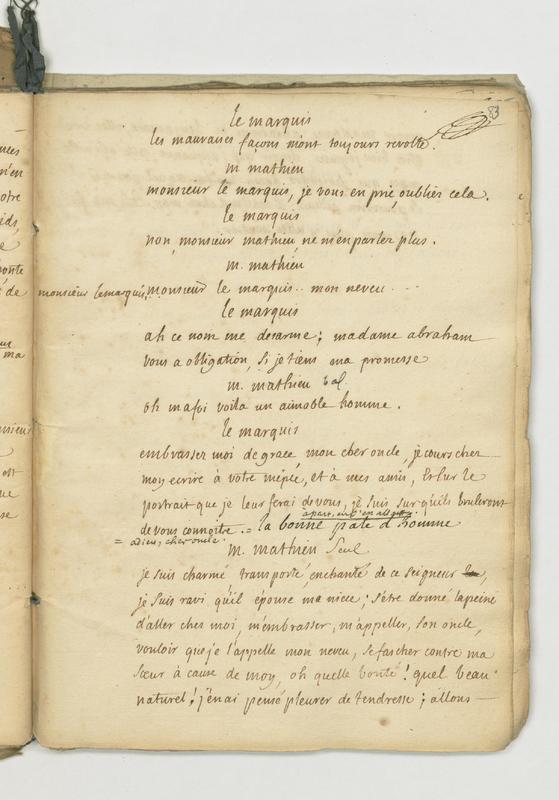 83
le marquis
les mauvaises façons m'ont toujours revolté.
m mathieu
monsieur le marquis, je vous en prie, oubliés cela.
le marquis
non, monsieur mathieu, ne m'en parlez plus.
m. mathieu
monsieur le marquis, monsieur le marquis.. mon neveu ...
le marquis
ah ce nom me desarme; madame abraham
vous a obligation, si je tiens ma promesse
m. mathieu
oh ma foi voila un aimable homme.
le marquis
embrassez moi de grace mon cher oncle, je cours chez
moy ecrire à votre niépce, et à mes amis, et sur le
portrait que je leur ferai de vous, je suis sur qu'ils bruleront
de vous connoître. = la bonne pate d'homme
apart, en s'en allant
= adieu, cher oncle.
m. mathieu seul
je suis charmé transporté, enchanté de ce seigneur,
je suis ravi qu'il épouse ma niece; s'être donné la peine
d'aller chez moi, m'embrasser, m'appeller, son oncle,
vouloir que je l'appelle mon neveu, se fascher contre ma
sœur à cause de moy, oh quelle bonté! quel beau
naturel! j'en ai pensé pleurer de tendresse; allons